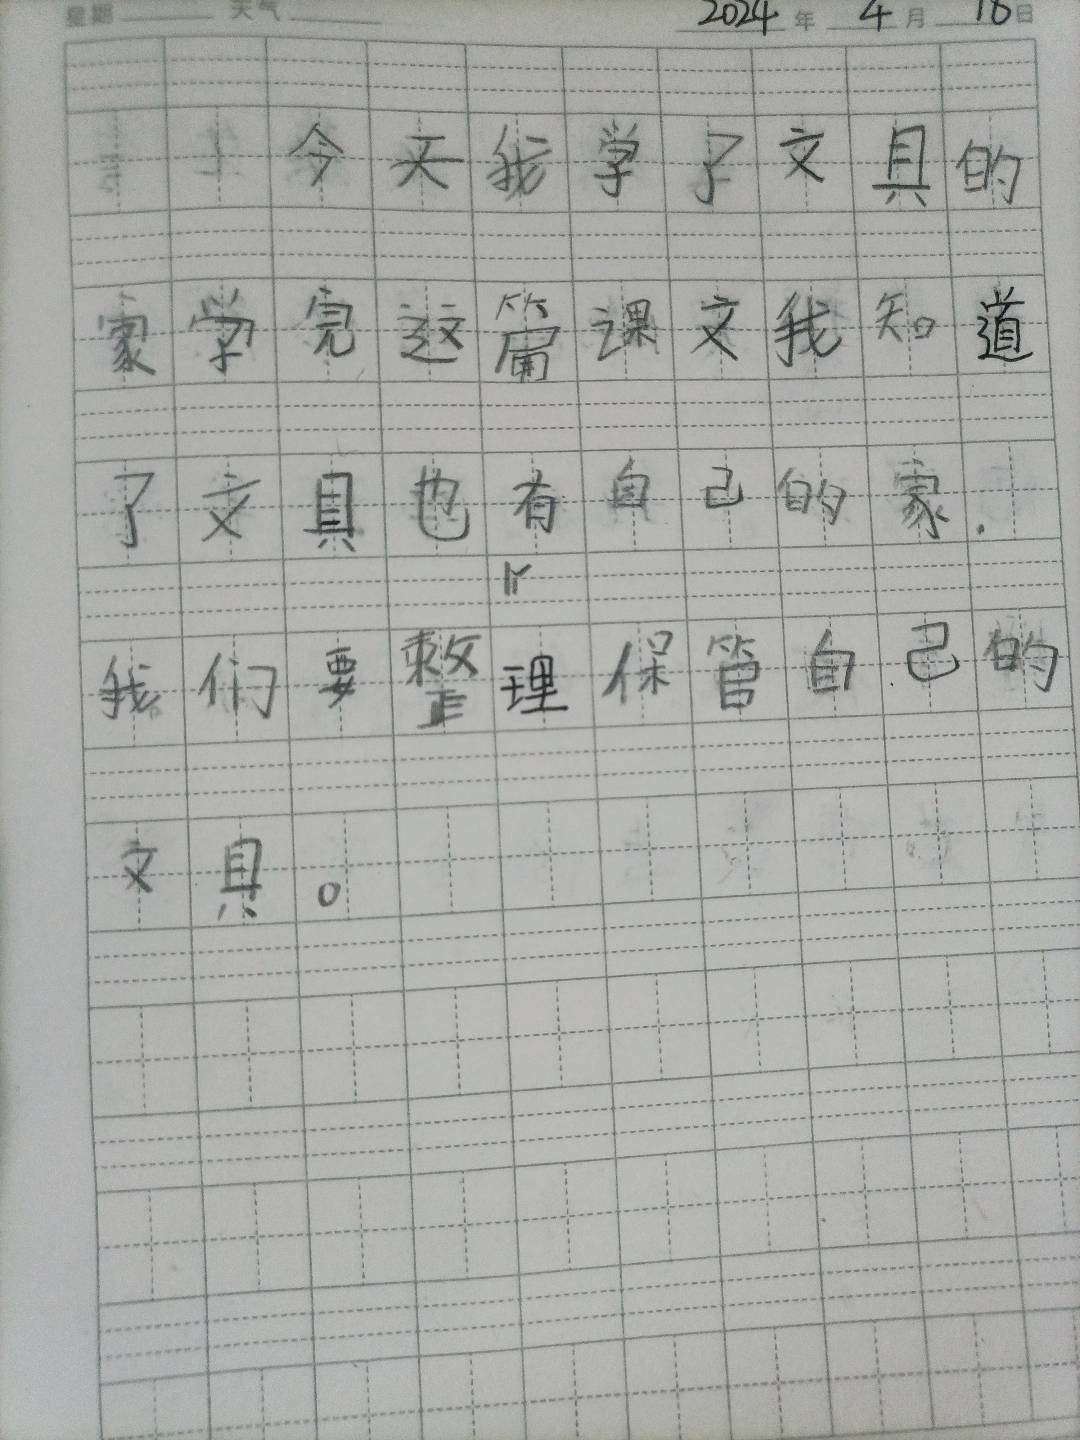 星期 天气 2024 年 4 月 16 日
今天我学了文具的
家学完这篇课文我知道
了文具也有自己的家.
我们要整理保管自己的
文具。